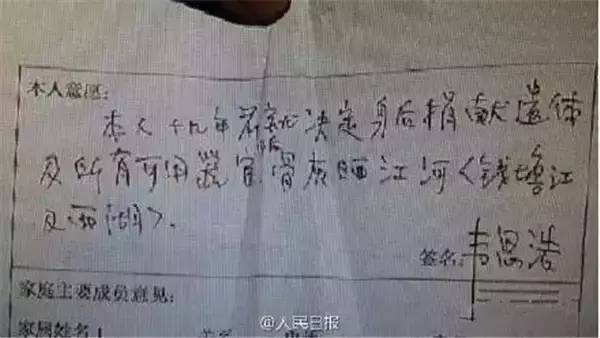 本人意愿:
本人十九年前就决定身后捐献遗体
及所有可用器官骨灰洒江河《钱塘江
及西湖》.
签名:韦思浩
家庭主要成员意见:
家属姓名
@人民日报